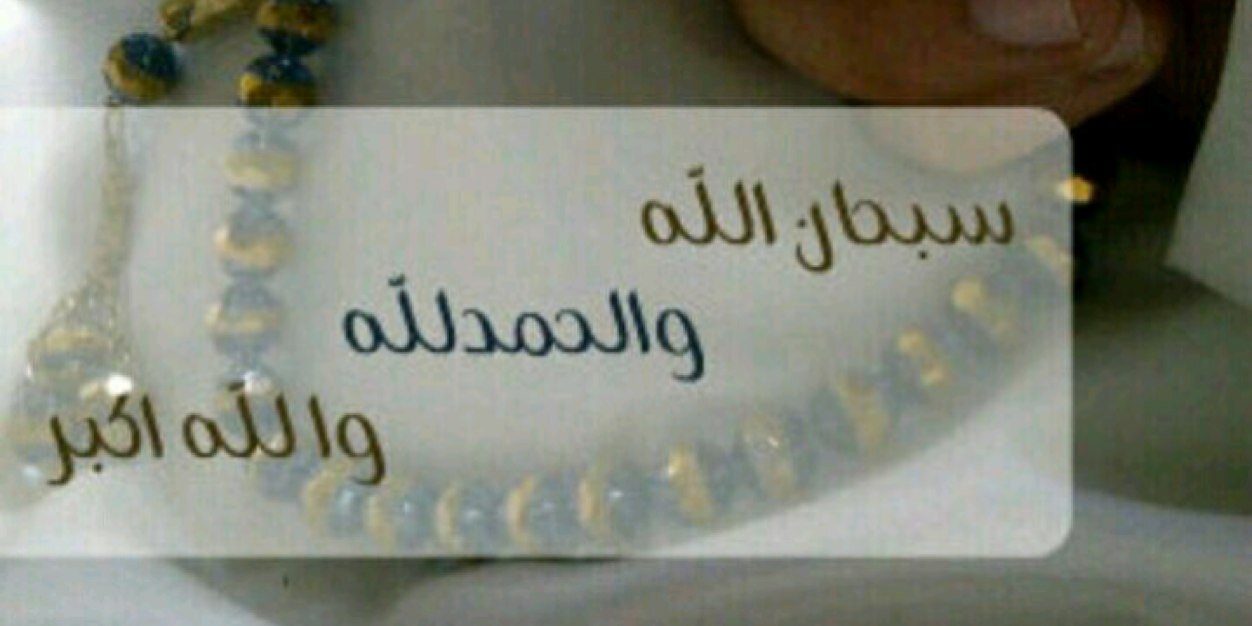 سبحان الله
والحمدلله
والله اكبر